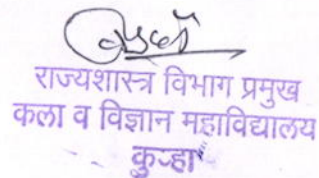 राज्यशास्त्र विभाग प्रमुख
कला व विज्ञान महाविद्यालय
कुऱ्हा